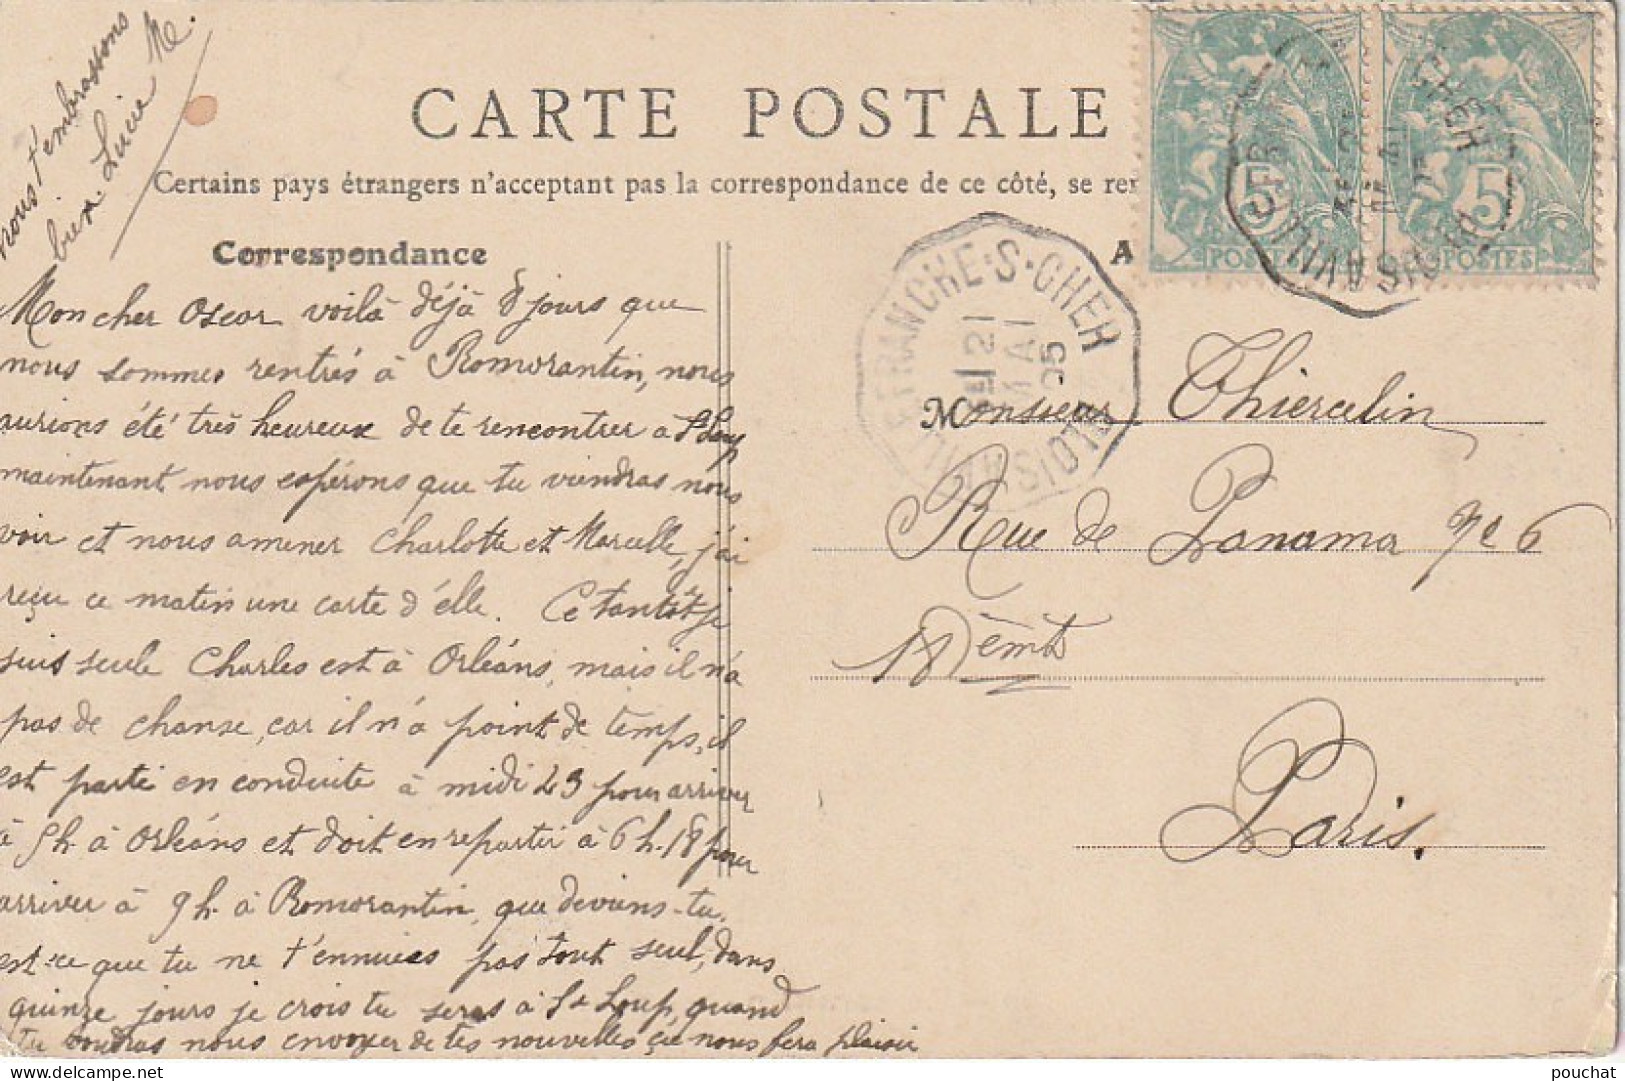 nous t'embrassons
bien Lucie
CARTE POSTALE
Certains pays étrangers n'acceptant pas la correspondance de ce côté, se re
Correspondance
A
Mon cher Oscar voilà déjà 8 jours que
nous sommes rentrés à Romorantin, nous
aurions été très heureux de te rencontrer a St Loup
maintenant nous espérons que tu viendras nous
voir et nous amener Charlotte et Marcelle, j'ai
reçu ce matin une carte d'elle. Ce tantôt je
suis seule Charles est à Orléans, mais il n'a
pas de chanse, car il n'a point de temps, il
est parti en conduite à midi 23 pour arriver
à 5h à Orléans et doit en repartir à 6h.18 pour
arriver à 9h à Romorantin, que deviens-tu,
est-ce que tu ne t'ennuies pas tout seul, dans
quinze jours je crois tu seras à St Loup, quand
tu voudras nous envoyer de tes nouvelles ça nous fera plaisir
5 5
POSTES POSTES
FRANCHE-S-CHER
21
MAI
05
BLOIS A VILL
Monsieur Thiercelin
Rue de Panama No 6
18èmt
Paris.
pouchat